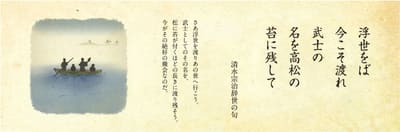 浮世をば
今こそ渡れ
武士の
名を高松の
苔に残して
清水宗治辞世の句
さあ浮世を渡りあの世へ行こう。
武士としてのその名を、
松に苔が付くほどの長きに渡り残そう。
今がその絶好の機会なのだ。